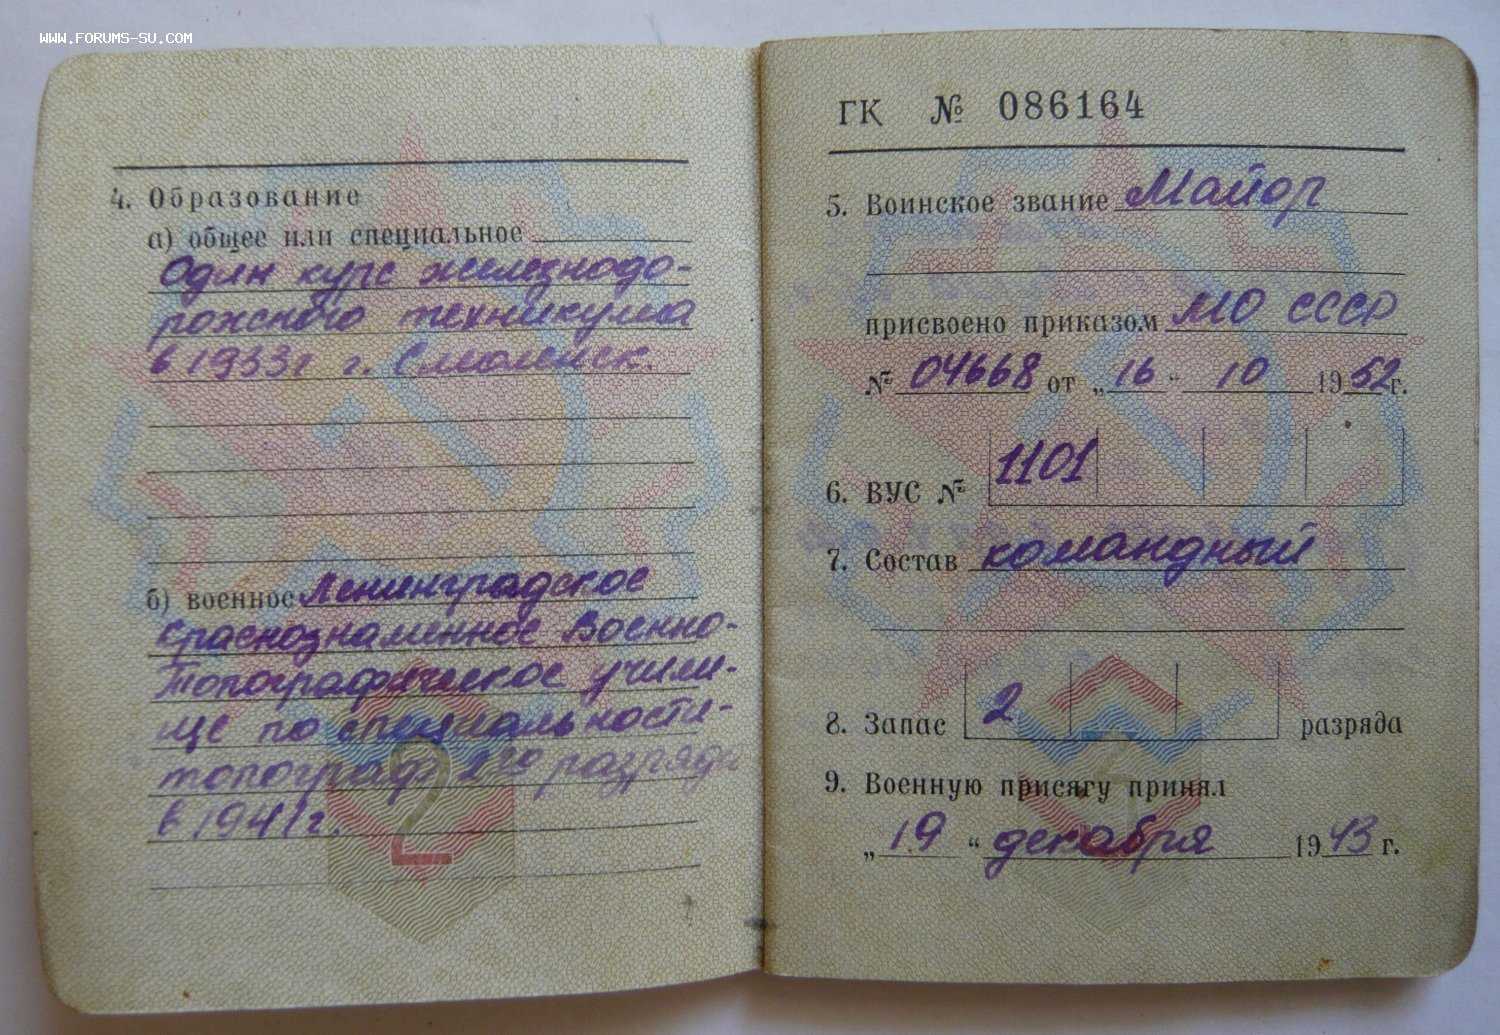 WWW.FORUMS-SU.COM
4. Образование
а) общее или специальное
Один курс железнодо-
рожного техникума
в 1933г г. Смоленск.
б) военное Ленинградское
Краснознаменное Военно-
Топографическое учили-
ще по специальности-
топограф 2го разряда
в 1941г.
2
ГК № 086164
5. Воинское звание Майор
присвоено приказом МО СССР
№ 04668 от „16“ 10 1952г.
6. ВУС № 1101
7. Состав командный
8. Запас 2 разряда
9. Военную присягу принял
„19“ декабря 1943 г.